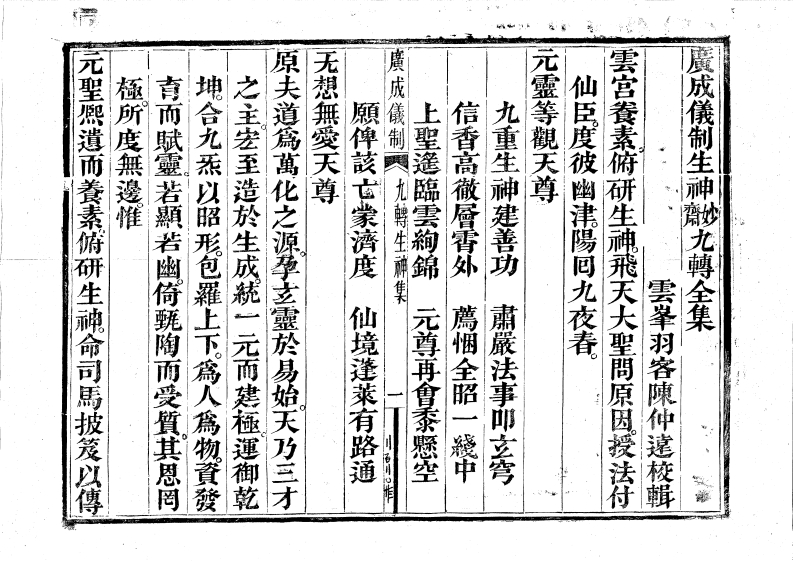 廣成儀制生神妙齋九轉全集
雲峯羽客陳仲遠校輯
雲宮養素。俯研生神。飛天大聖問原因。授法付
仙臣。度彼幽津。陽囘九夜春。
元靈等觀天尊
九重生神建善功　肅嚴法事叩玄穹
信香高徹層霄外　薦悃全昭一綫中
上聖遙臨雲絢錦　元尊再會黍懸空
願俾該亡蒙濟度　仙境蓬萊有路通
廣成儀制　九轉生神集　一
无想無愛天尊
原夫道爲萬化之源。孕玄靈於易始。天乃三才
之主。宏至造於生成。統一元而建極。運御乾
坤。合九炁以昭形。包羅上下。爲人爲物。資發
育而賦靈。若顯若幽。倚甄陶而受質。其恩罔
極。所度無邊。惟
元聖熈遺而養素。俯研生神。命司馬披笈以傳